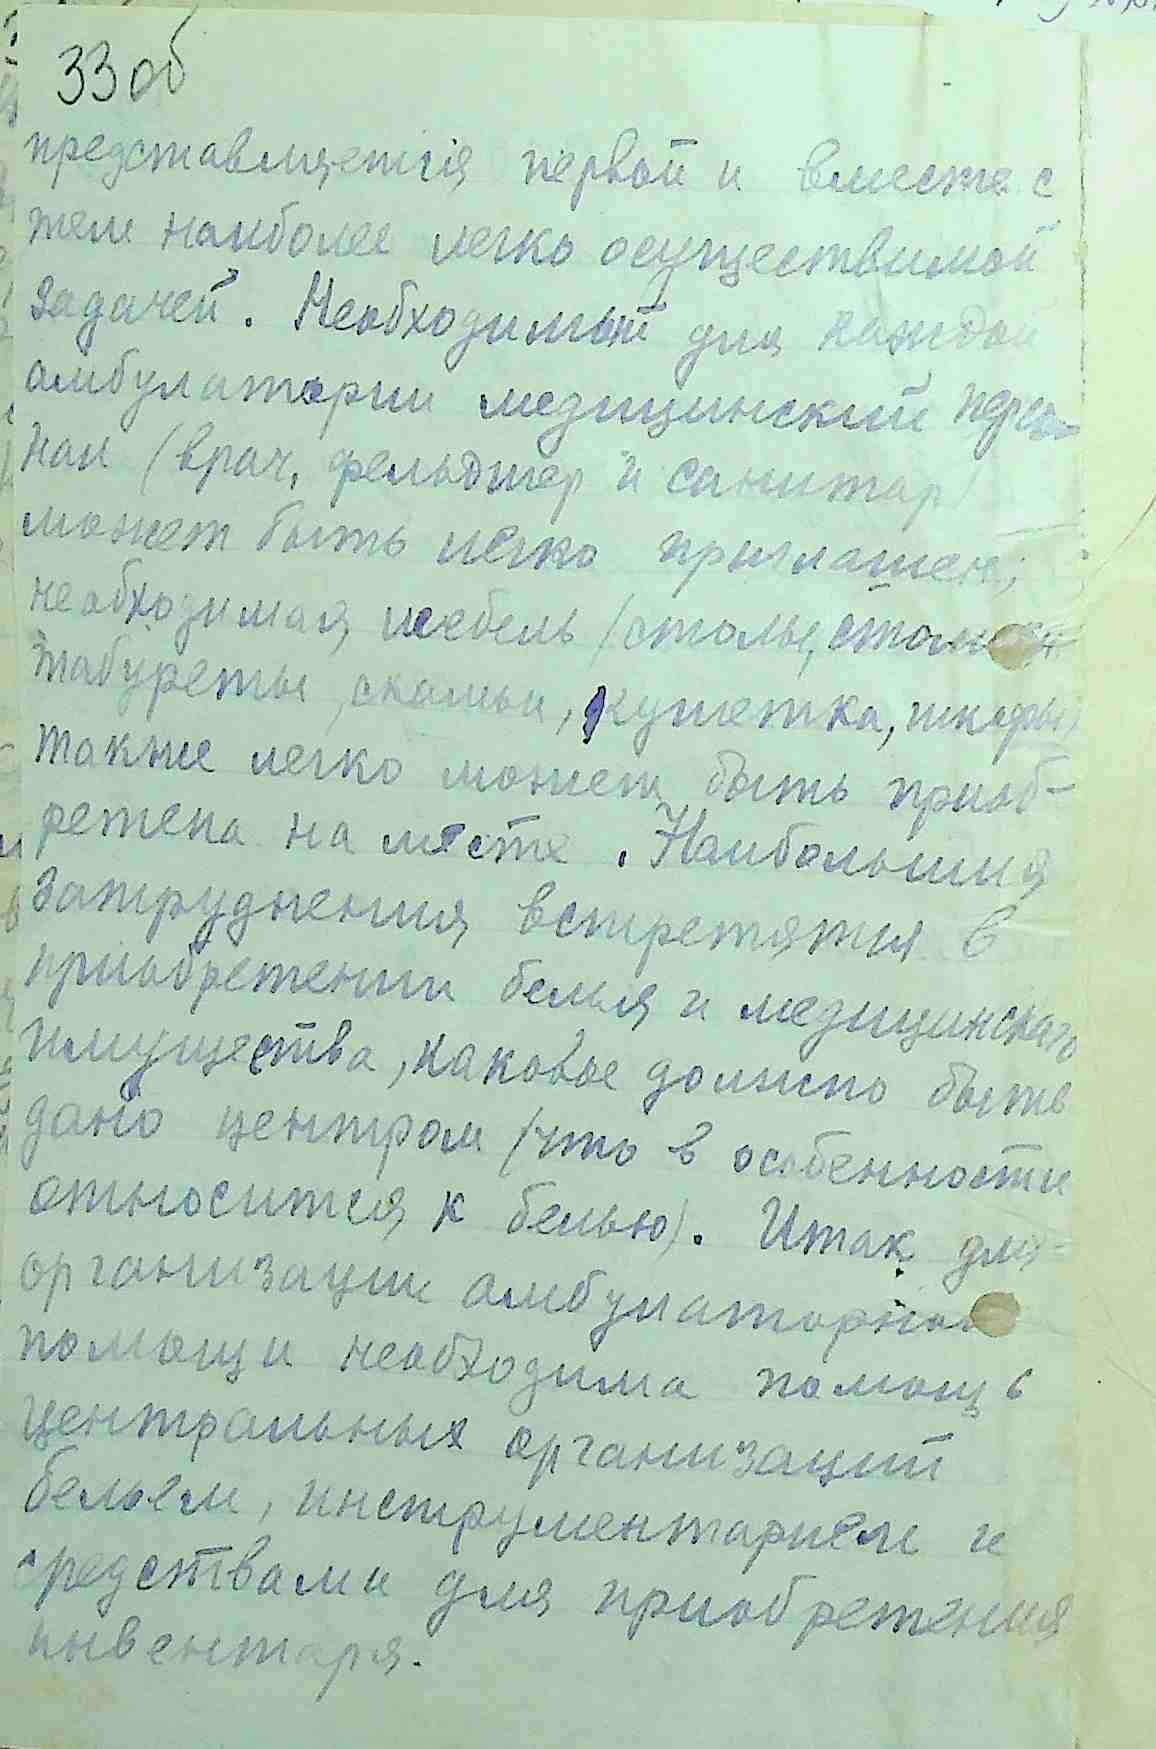 33 об
представляется первой и вместе с
тем наиболее легко осуществимой
задачей. Необходимый для каждой
амбулатории медицинский персо-
нал (врач, фельдшер и санитар)
может быть легко приглашен;
необходимая мебель (столы,
табуреты, скамьи, кушетка, шкафы)
также легко может быть приоб-
ретена на месте. Наибольшия
затруднения встретятся в
приобретении белья и медицинскаго
имущества, каковое должно быть
дано центром (что в особенности
относится к белью). Итак для
организации амбулаторной
помощи необходима помощь
центральных организаций
бельем, инструментарием и
средствами для приобретения
инвентаря.